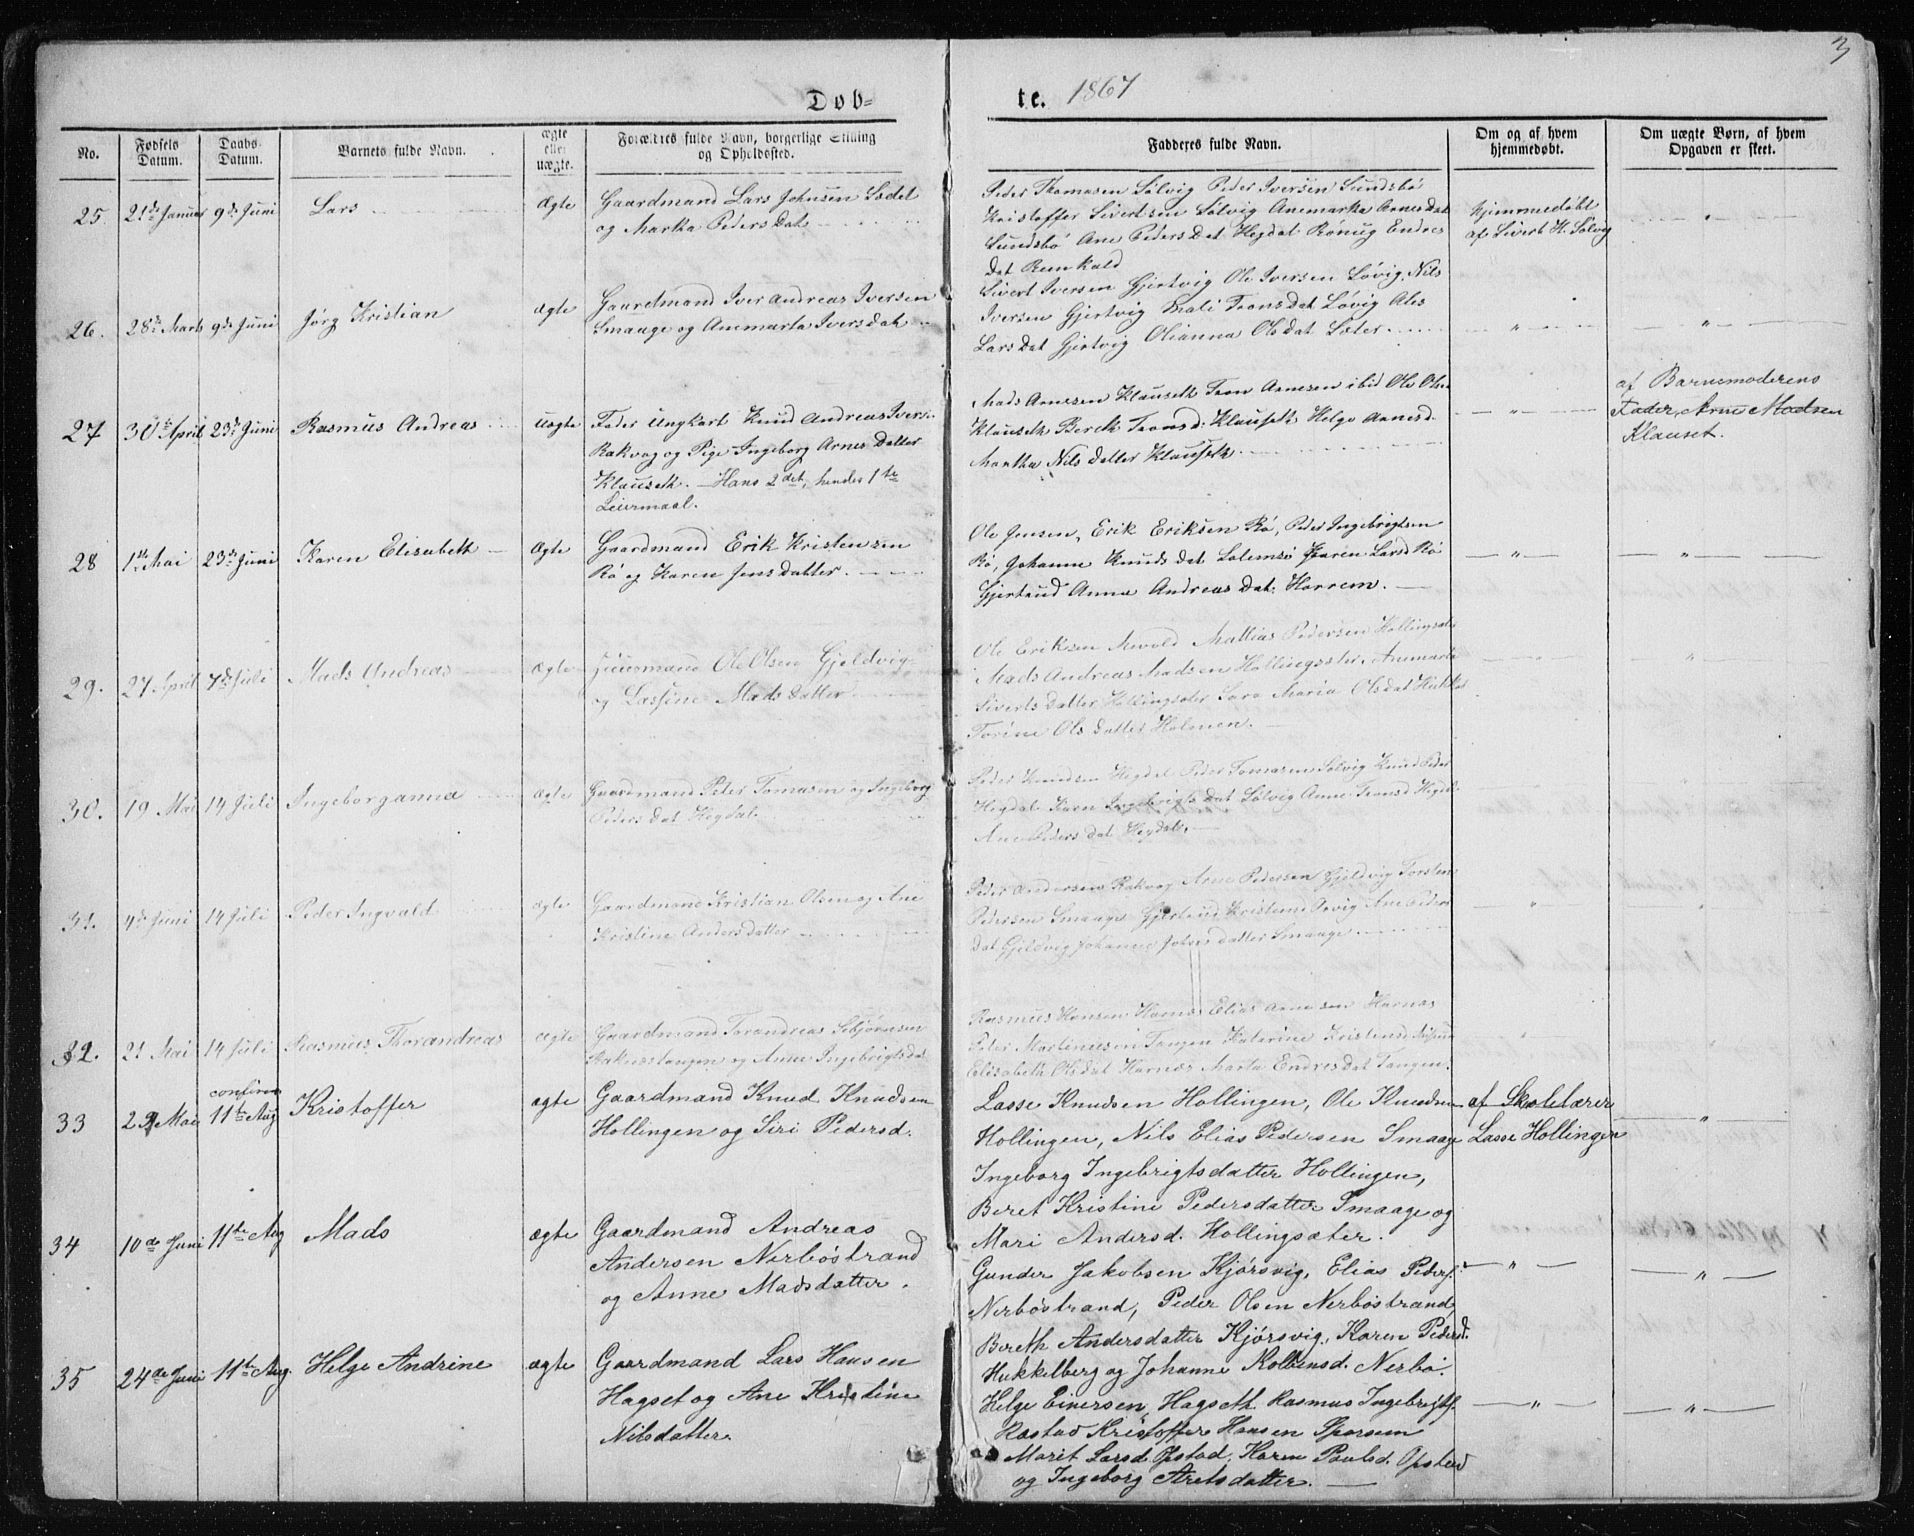 3
Døb=
te. 1867
No.
Fødsels Datum.
Daabs Datum.
Barnets fulde Navn.
ægte eller uægte.
Forældres fulde Navn, borgerlige Stilling og Opholdssted.
Fadderes fulde Navn.
Om og af hvem hjemmedøbt.
Om uægte Børn, af hvem Opgaven er skeet.
25. 21de Januar 9de Juni Lars ægte
Gaardmand Lars Johnsen Sædel
og Marka Pedersdat
Peder Thomasen Sølvig Peder Iversen Sundsbø
Kristoffer Sivertsen Sølvig Anemarka Arnesdat
Sundsbø Ane Pedersdat Hegdal Ronug Endres
dat
hjemmedøbt
af Sivert H. Sølvig
26. 28de Marts 9de Juni Jørg Kristian ægte
Gaardmand Iver Andreas Iversen
Smaage og Anemarta Iversdat
Sivert Iversen Gjertvig Ole Iversen Løvig, Nils
Iversen Gjertvig Mali Tronsdat Løvig Ales
Larsdat Gjertvig Olianna Olsdat Sæter
27 30te April 23de Juni Rasmus Andreas uægte
Fader Ungkarl Knud Andreas Ivers.
Rakvag og Pige Ingeborg Arnesdatter
Klauseth. – Hans 2det, hendes 1te
Leiermaal.
Mads Arnesen Klauseth Tron Arnesen ibid Ole Olsen
Klauseth Bereth Tronsd. Klauseth Helge Arnesd.
Martha Nilsdatter Klauseth
af Barnemoderens
Fader, Arne Madsen
Klauset.
28 1ste Mai 23de Juni Karen Elisabeth ægte
Gaardmand Erik Kristensen
Rø og Karen Jensdatter.
Ole Jensen, Erik Eriksen Rø, Peder Ingebrigtsen
Rø, Johanne Knudsdat Solemsø Karen Larsd Rø
Gjertrud Anna Andreasdat. Harrem.
29. 27 April 7de Juli Mads Andreas ægte
Huusmand Ole Olsen Gjeldvig
og Lassine Madsdatter
Ole Eriksen Mattias Pedersen Hollingsæter
Mads Andreas Madsen Hollingsæter, Anmarta
Sivertsdatter Hollingsæter Sara Maria Olsdat Hukkel
Torine Olsdatter Holmen.
30. 19 Mai 14 Juli Ingeborganna ægte
Gaardmand Peter Tomasen og Ingeborg
Pedersdat Hegdal
Peder Knudsen Hegdal Peder Tomasen Sølvig Knud Peder
Hegdal Karn Ingebrigtsdat Sølvig Anne Tronsd Hegdal
Ane Pedersdat Hegdal.
31. 4de Juni 14 Juli Peder Ingvald ægte
Gaardmand Kristian Olsen og Ane
Kristine Andersdatter
Peder Andersen Rakvag Arne Pedersen Gjeldvig Torsten
Pedersen Smaage Gjertrud Kristensd Ane Peders
dat Gjeldvig Johanne datter Smaage
32. 21 Mai 14 Juli Rasmus Thorandreas ægte
Gaardmand Torandreas
og Anne Ingebrigtsdat.
Rasmus Hansen Harnes Elias Arnesen Harnæs
Peter Martinusen Tangen Katarine Kristensd
Elisabeth Olsdat Harnæs Marta Endresdat Tangen.
confirm
33 22 Mai 11te Aug Kristoffer ægte
Gaardmand Knud Knudsen
Hollingen og Siri Pedersd.
Lasse Knudsen Hollingen, Ole Knudsen
Hollingen, Nils Elias Pedersen Smaage
Ingeborg Ingebrigtsdatter Hollingen,
Beret Kristine Pedersdatter Smaage og
Mari Andersd. Hollingsæter.
af Skolelærer
Lasse Hollingen
34 10de Juni 11te Aug Mads ægte
Gaardmand Andreas
Andersen Nerbøstrand
og Anne Madsdatter.
Gunder Jakobsen Kjørsvig, Elias Peders.
Nerbøstrand, Peder Olsen Nerbøstrand,
Bereth Andersdatter Kjørsvig, Karen Pedersd.
Hukkelberg og Johanne Kolbensd. Nerbø.
35 24de Juni 11te Aug. Helge Andrine ægte
Gaardmand Lars Hansen
Hagset og Ane Kristine
Nilsdatter
Helge Einersen Hagseth Rasmus Ingebrigts.
Rastad Kristoffer Hansen
Marit Larsd. Opstad, Karen Paulsd. Opstad
og Ingeborg Aretsdatter.